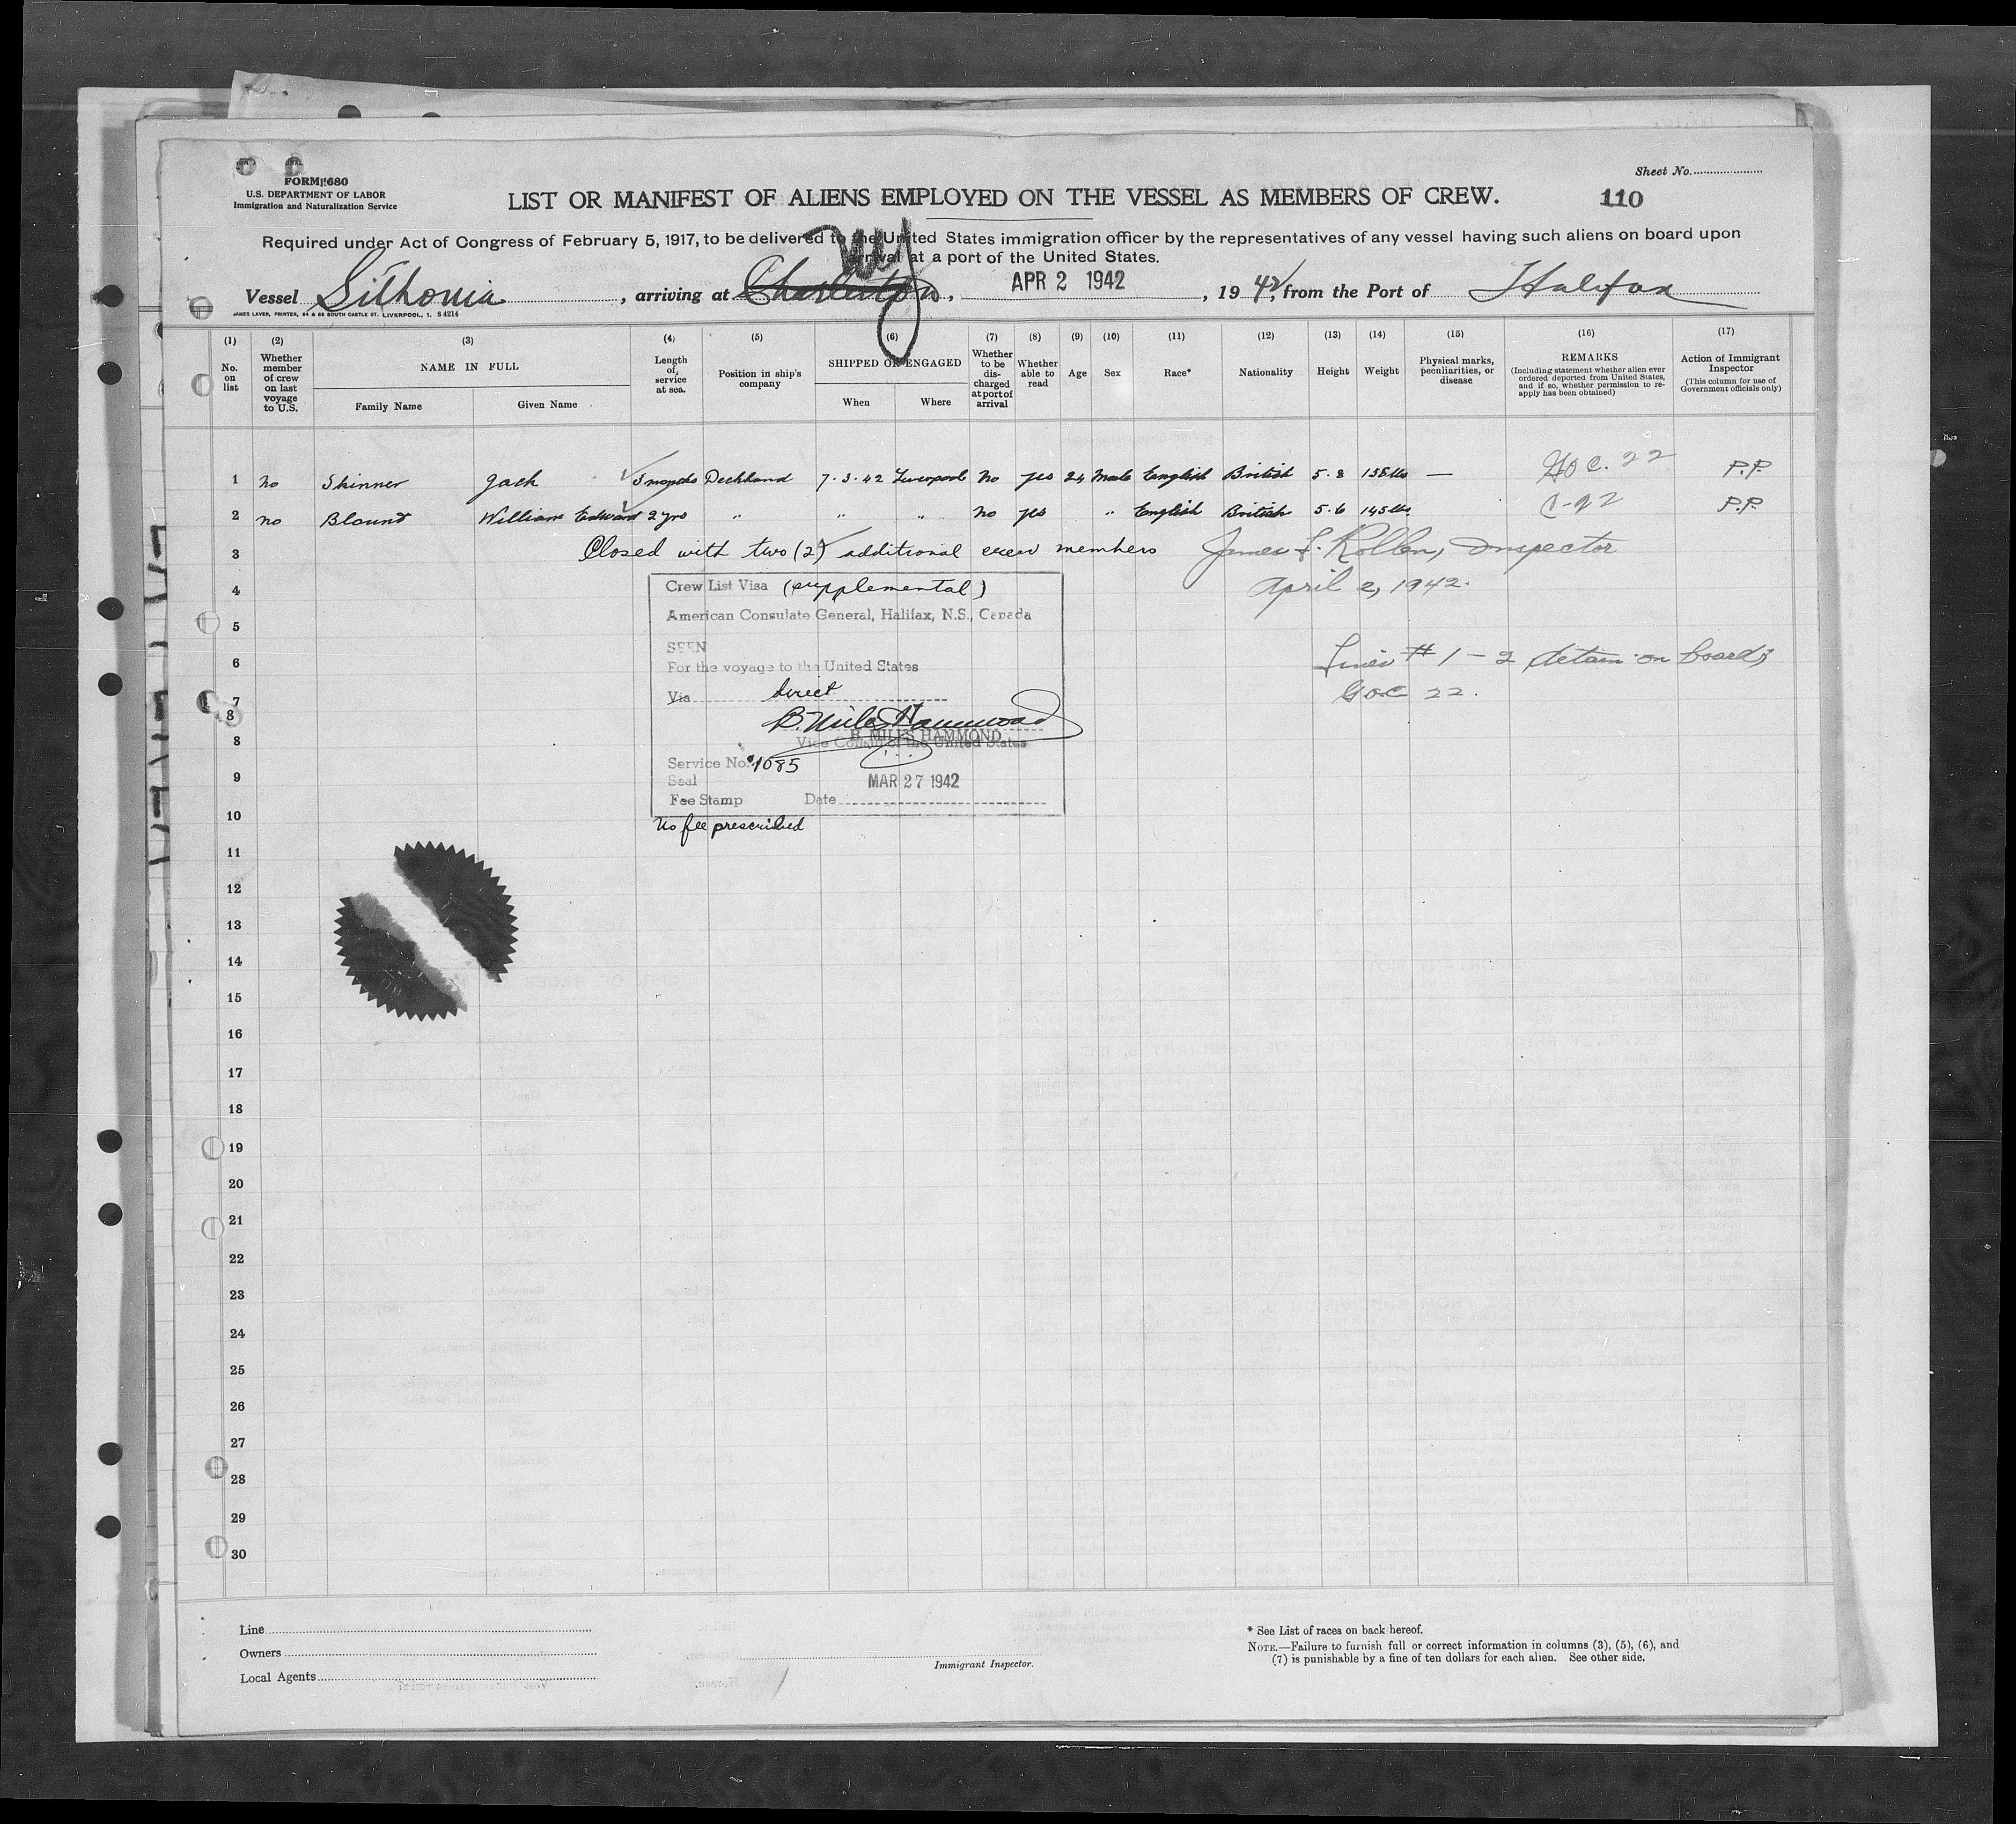 FORM 680
U.S. DEPARTMENT OF LABOR
Immigration and Naturalization Service
Sheet No.
LIST OR MANIFEST OF ALIENS EMPLOYED ON THE VESSEL AS MEMBERS OF CREW. 110
Required under Act of Congress of February 5, 1917, to be delivered to the United States immigration officer by the representatives of any vessel having such aliens on board upon
arrival at a port of the United States.
NY
Vessel Sithonia, arriving at Charleston, APR 2 1942, 1942, from the Port of Halifax
JAMES LAVER, PRINTER, 64 & 66 SOUTH CASTLE ST. LIVERPOOL, 1. S 4214
(1) No. on list
(2) Whether member of crew on last voyage to U.S.
(3) NAME IN FULL Family Name Given Name
(4) Length of service at sea.
(5) Position in ship's company
(6) SHIPPED OR ENGAGED When Where
(7) Whether to be discharged at port of arrival
(8) Whether able to read
(9) Age
(10) Sex
(11) Race*
(12) Nationality
(13) Height
(14) Weight
(15) Physical marks, peculiarities, or disease
(16) REMARKS (Including statement whether alien ever ordered deported from United States, and if so, whether permission to re-apply has been obtained)
(17) Action of Immigrant Inspector (This column for use of Government officials only)
1 no Skinner Jack 3 months Deckhand 7.3.42 Liverpool No yes 24 Male English British 5.8 158 lbs — GOC. 22 P.P.
2 no Blount William Edward 2 yrs " " " No yes " English British 5.6 145 lbs. C-22 P.P.
3 Closed with two (2) additional crew members James F. Rollen, Inspector
4 April 2, 1942.
Crew List Visa (supplemental)
American Consulate General, Halifax, N.S., Canada
5
SEEN
6 For the voyage to the United States
Lines # 1-2 detain on board;
GOC 22.
7 Via direct
8
B. Miles Hammond
B. MILES HAMMOND
8 Vice Consul of the United States
Service No. 1085
9 Seal MAR 27 1942
Fee Stamp Date
10
No fee prescribed
11
12
13
14
15
16
17
18
19
20
21
22
23
24
25
26
27
28
29
30
Line
Owners
Local Agents
Immigrant Inspector.
* See List of races on back hereof.
NOTE.—Failure to furnish full or correct information in columns (3), (5), (6), and
(7) is punishable by a fine of ten dollars for each alien. See other side.